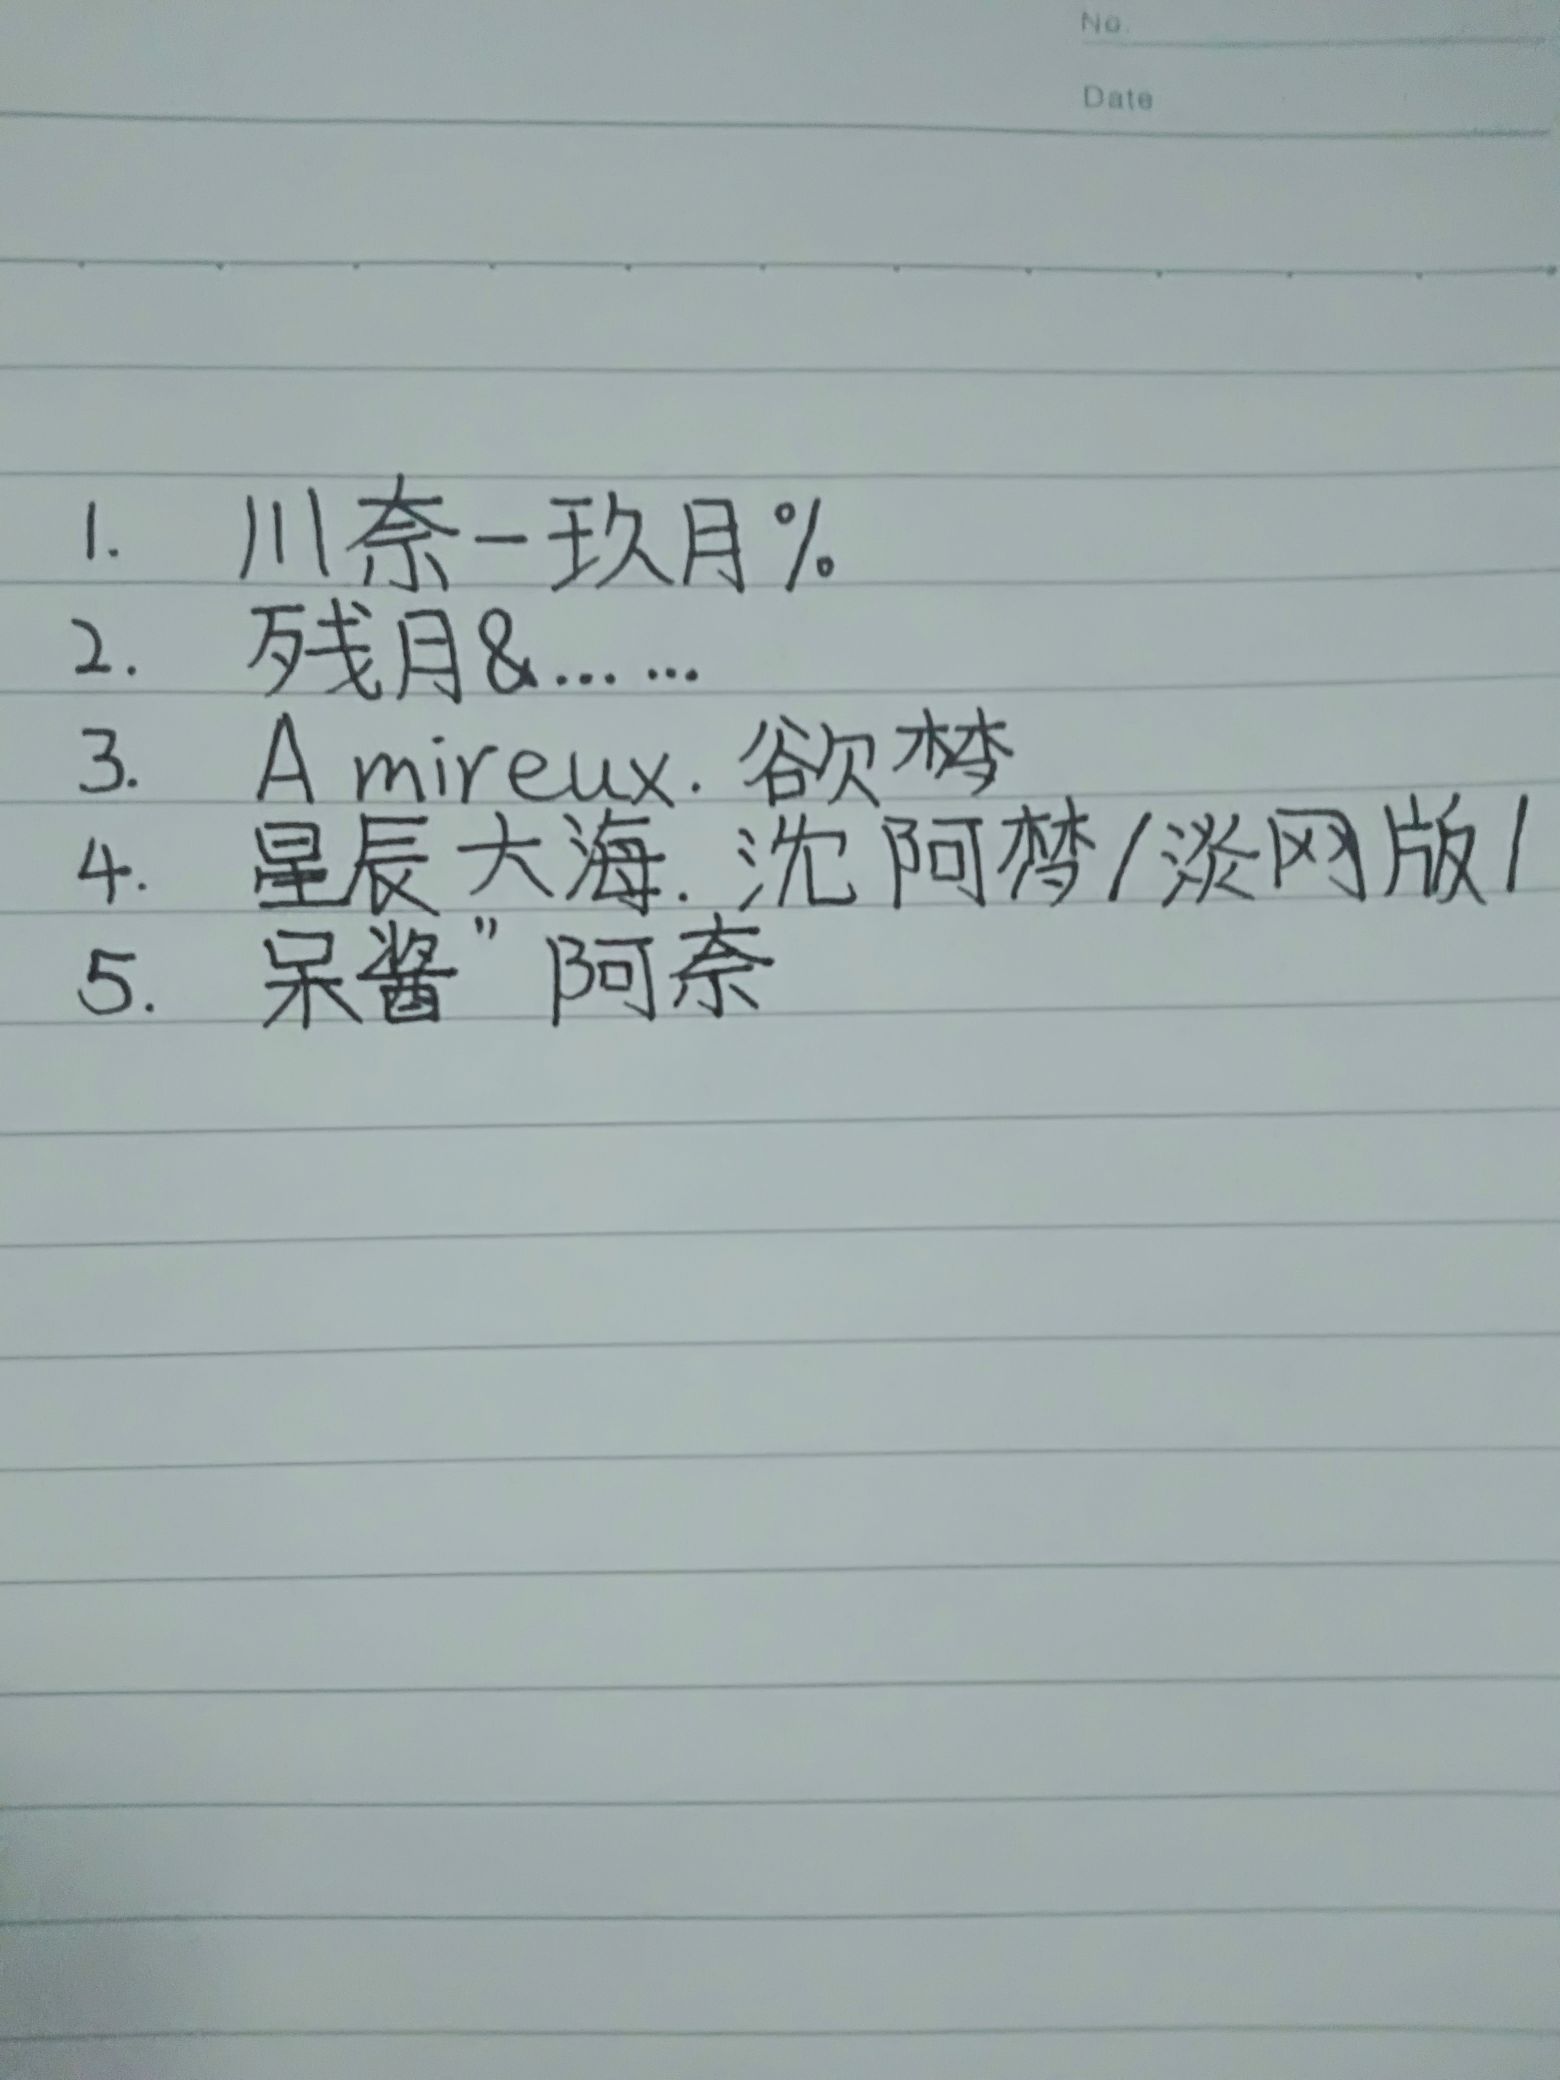 No.
Date
1. 川奈-玖月%
2. 残月&……
3. Amireux.欲梦
4. 星辰大海.沈阿梦/淡网版/
5. 呆酱”阿奈